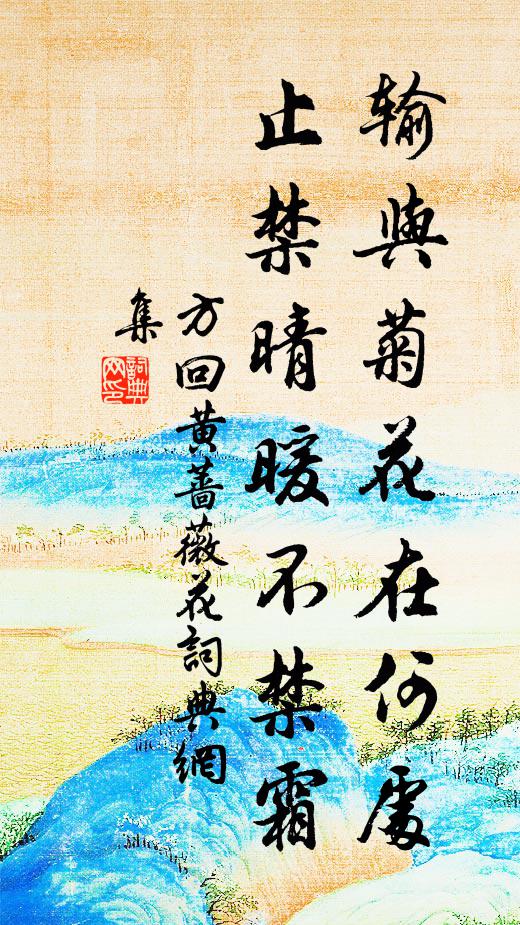 輸與菊花在何處
止禁晴暖不禁霜
方回黄薔薇花詞典網
集
詞典
网印